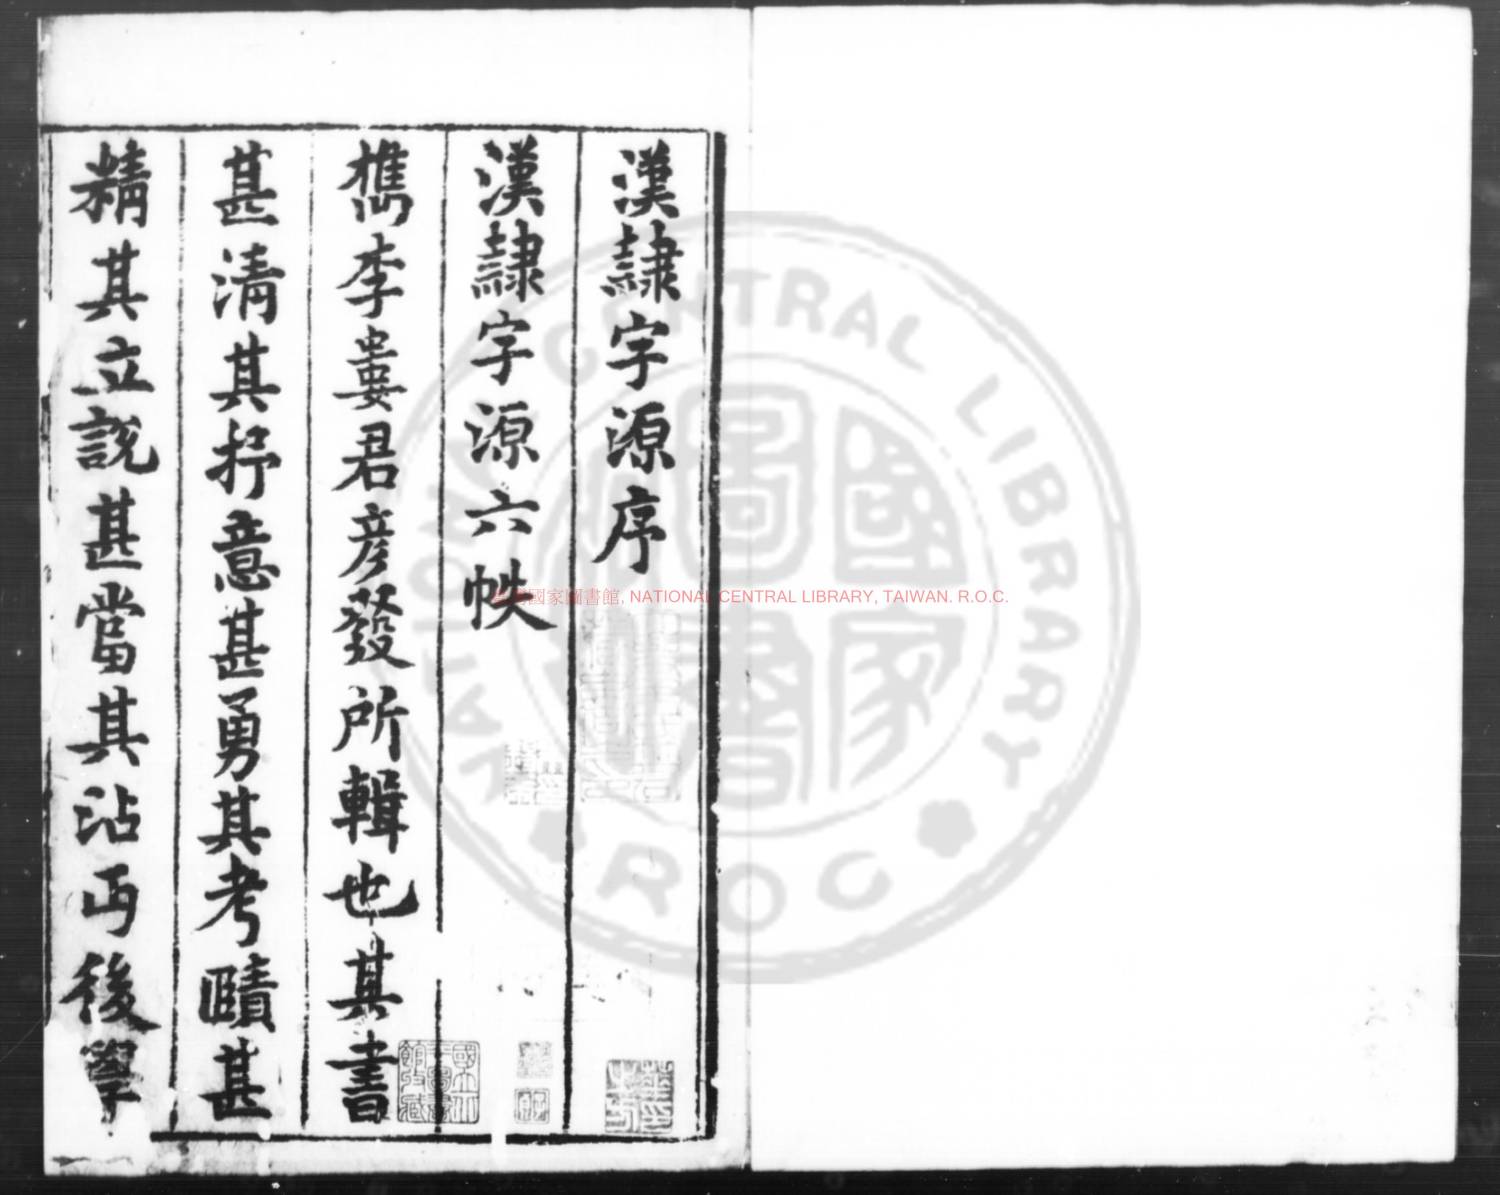 漢隷字源序
漢隷字源六帙
檇李婁君彦發所輯也其書
甚清其抒意甚勇其考賾甚
精其立説甚當其沾丐後學
臺灣國家圖書館, NATIONAL CENTRAL LIBRARY, TAIWAN. R.O.C.
NATIONAL CENTRAL LIBRARY
ROC
國家圖書